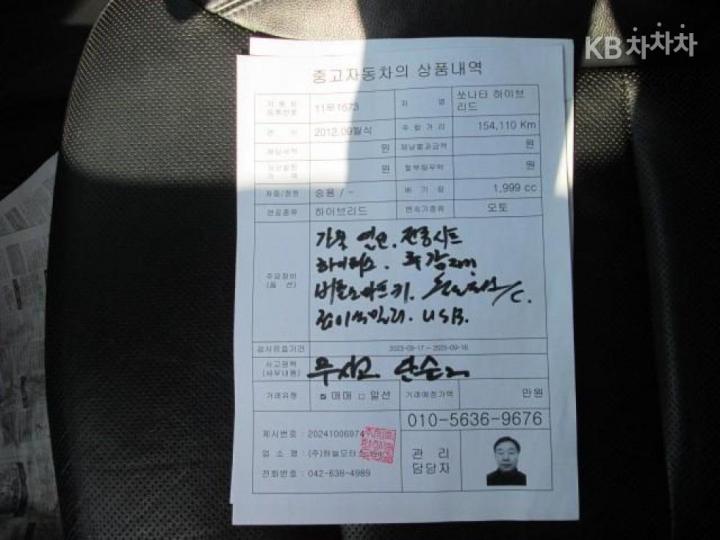 KB차차차
중고자동차의 상품내역
자동차등록번호 11무1573 차 명 쏘나타 하이브리드
연 식 2012.09월식 주행거리 154,110 Km
원 원
원 원
차종/정원 승용 / - 배기량 1,999 cc
연료종류 하이브리드 변속기종류 오토
주요장비
(옵션)
가죽 열선. 전동시트
하이패스.
버튼스마트키. /C.
USB.
검사유효기간 2023-09-17 ~ 2025-09-16
사고경력
무사고 단순
거래유형 매매 알선 만원
010-5636-9676
제시번호 : 20241006974
업 소 명 : (주)하늘모터스
전화번호 : 042-638-4989
관 리
담당자